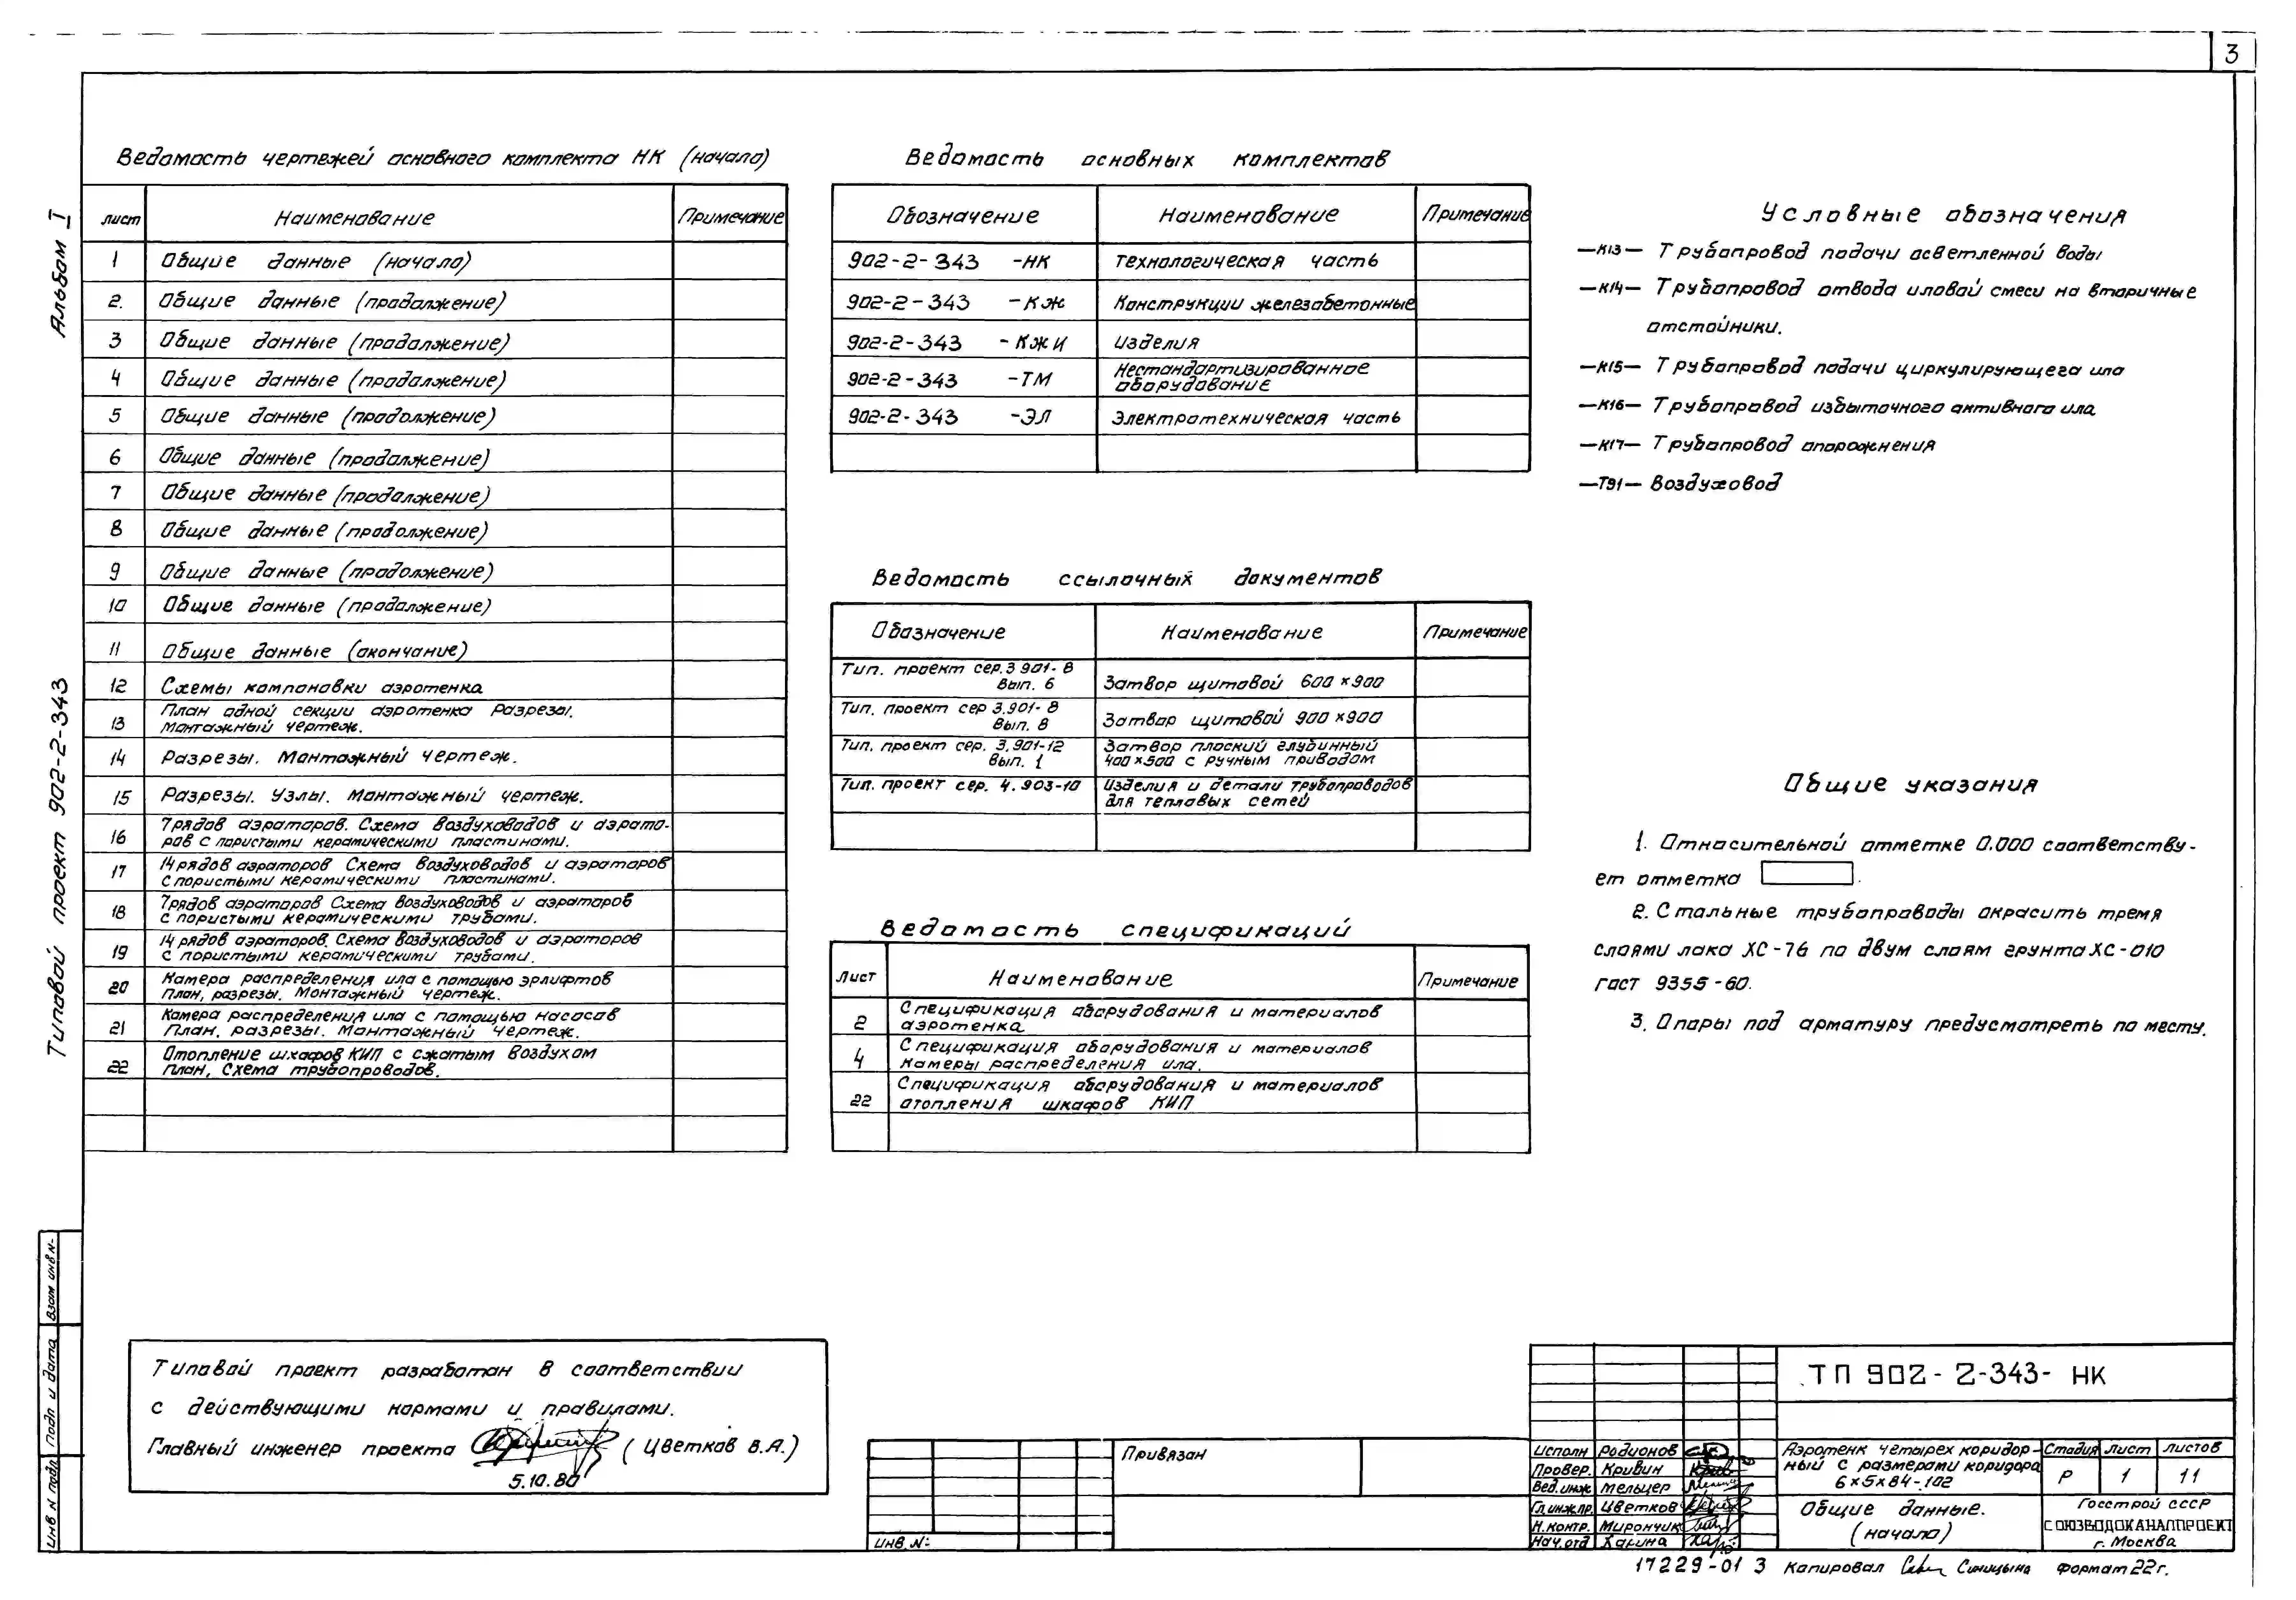 3
Альбом I
Типовой проект 902-2-343
Ведомость чертежей основного комплекта НК (начало)
лист Наименование Примечание
1 Общие данные (начало)
2. Общие данные (продолжение)
3 Общие данные (продолжение)
4 Общие данные (продолжение)
5 Общие данные (продолжение)
6 Общие данные (продолжение)
7 Общие данные (продолжение)
8 Общие данные (продолжение)
9 Общие данные (продолжение)
10 Общие данные (продолжение)
11 Общие данные (окончание)
12 Схемы компоновки аэротенка
13 План одной секции аэротенка Разрезы.
Монтажный чертеж.
14 Разрезы. Монтажный чертеж.
15 Разрезы. Узлы. Монтажный чертеж.
16 7рядов аэраторов. Схема воздуховодов и аэрато-
ров с пористыми керамическими пластинами.
17 14 рядов аэраторов Схема воздуховодов и аэраторов
с пористыми керамическими пластинами.
18 7рядов аэраторов Схема воздуховодов и аэраторов
с пористыми керамическими трубами.
19 14 рядов аэраторов. Схема воздуховодов и аэраторов
с пористыми керамическими трубами.
20 Камера распределения ила с помощью эрлифтов
План, разрезы. Монтажный чертеж.
21 Камера распределения ила с помощью насосов
План, разрезы. Монтажный чертеж.
22 Отопление шкафов КИП с сжатым воздухом
План, Схема трубопроводов.
Ведомость основных комплектов
Обозначение Наименование Примечание
902-2-343 -НК Технологическая часть
902-2-343 -КЖ Конструкции железобетонные
902-2-343 -КЖИ Изделия
902-2-343 -ТМ Нестандартизированное
оборудование
902-2-343 -ЭЛ Электротехническая часть
Ведомость ссылочных документов
Обозначение Наименование Примечание
Тип. проект сер.3 901-8
Вып. 6 Затвор щитовой 600×900
Тип. проект сер 3.901-8
Вып. 8 Затвор щитовой 900×900
Тип. проект сер. 3.901-12 Затвор плоский глубинный
Вып. 1 400×500 с ручным приводом
Тип. проект сер. 4.903-10 Изделия и детали трубопроводов
для тепловых сетей
Ведомость спецификаций
Лист Наименование Примечание
2 Спецификация оборудования и материалов
аэротенка.
4 Спецификация оборудования и материалов
камеры распределения ила.
22 Спецификация оборудования и материалов
отопления шкафов КИП
Условные обозначения
—К13— Трубопровод подачи осветленной воды
—К14— Трубопровод отвода иловой смеси на вторичные
отстойники.
—К15— Трубопровод подачи циркулирующего ила
—К16— Трубопровод избыточного активного ила.
—К17— Трубопровод опорожнения
—Т91— Воздуховод
Общие указания
1. Относительной отметке 0.000 соответству-
ет отметка .
2. Стальные трубопроводы окрасить тремя
слоями лака ХС-76 по двум слоям грунта ХС-010
гост 9355-60.
3. Опоры под арматуру предусмотреть по месту.
Типовой проект разработан в соответствии
с действующими нормами и правилами.
Главный инженер проекта (Цветков В.А.)
5.10.80
Взам инв N-
Подп и дата
Инв N подл
Привязан
Инв. N-
ТП 902-2-343- НК
Исполн Родионов
Провер. Кривин
Вед. инж Мельцер
Гл.инж.пр. Цветков
Н.контр. Мирончик
Нач.отд Ханина
Аэротенк четырех коридор-
ный с размерами коридора
6×5×84-102
Стадия Лист Листов
Р 1 11
Общие данные.
(начало)
Госстрой СССР
СОЮЗВОДОКАНАЛПРОЕКТ
г. Москва
17229-01 3 Копировал Синицына формат 22г.